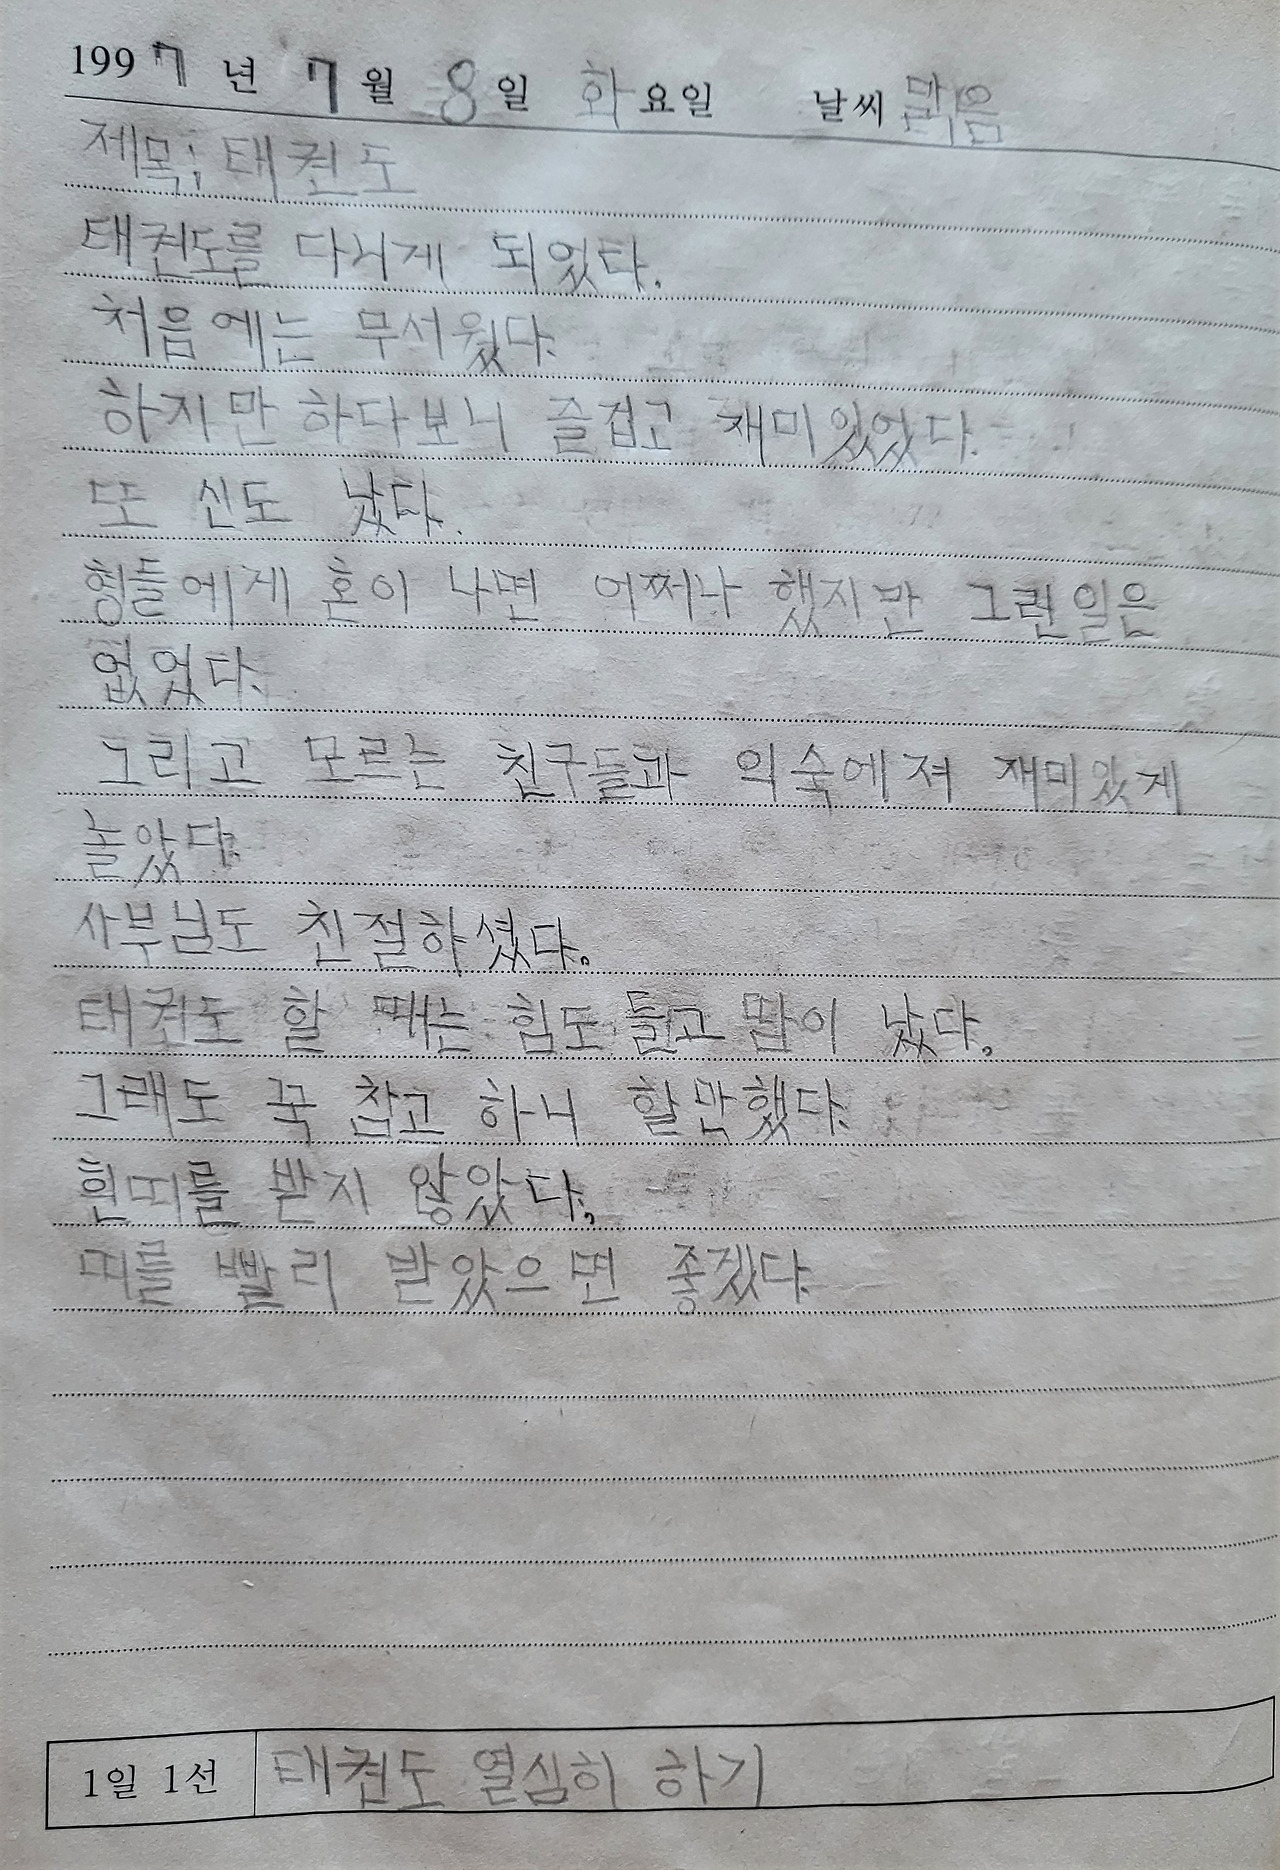 1997년 7월 8일 화요일 날씨 맑음
제목; 태권도
태권도를 다니게 되었다.
처음에는 무서웠다.
하지만 하다보니 즐겁고 재미있었다.
또 신도 났다.
형들에게 혼이 나면 어쩌나 했지만 그런일은
없었다.
그리고 모르는 친구들과 익숙에져 재미있게
놀았다.
사부님도 친절하셨다.
태권도 할 때는 힘도 들고 땀이 났다.
그래도 꾹 참고 하니 할만했다.
흰띠를 받지 않았다.
띠를 빨리 받았으면 좋겠다.
1일 1선 태권도 열심히 하기